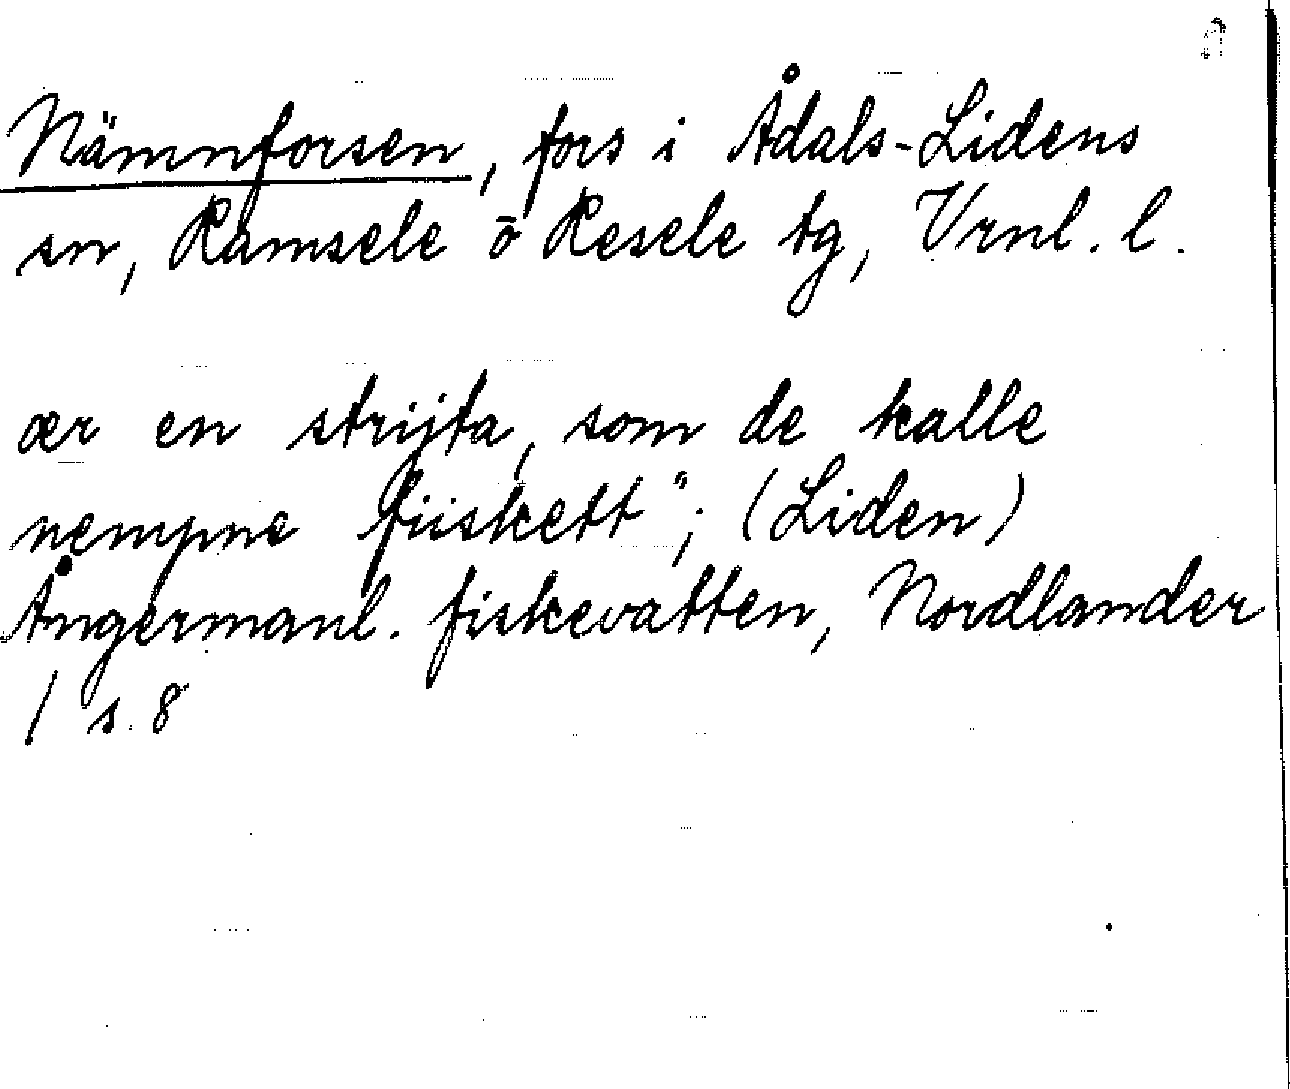 Nämnforsen, fors i Ådals-Lidens
sn, Ramsele o Resele tg, Vrnl. l.
ær en strijta, som de kalle
nempne fiiskett"; (Liden)
Ångermanl. fiskevatten, Nordlander
/ s. 8